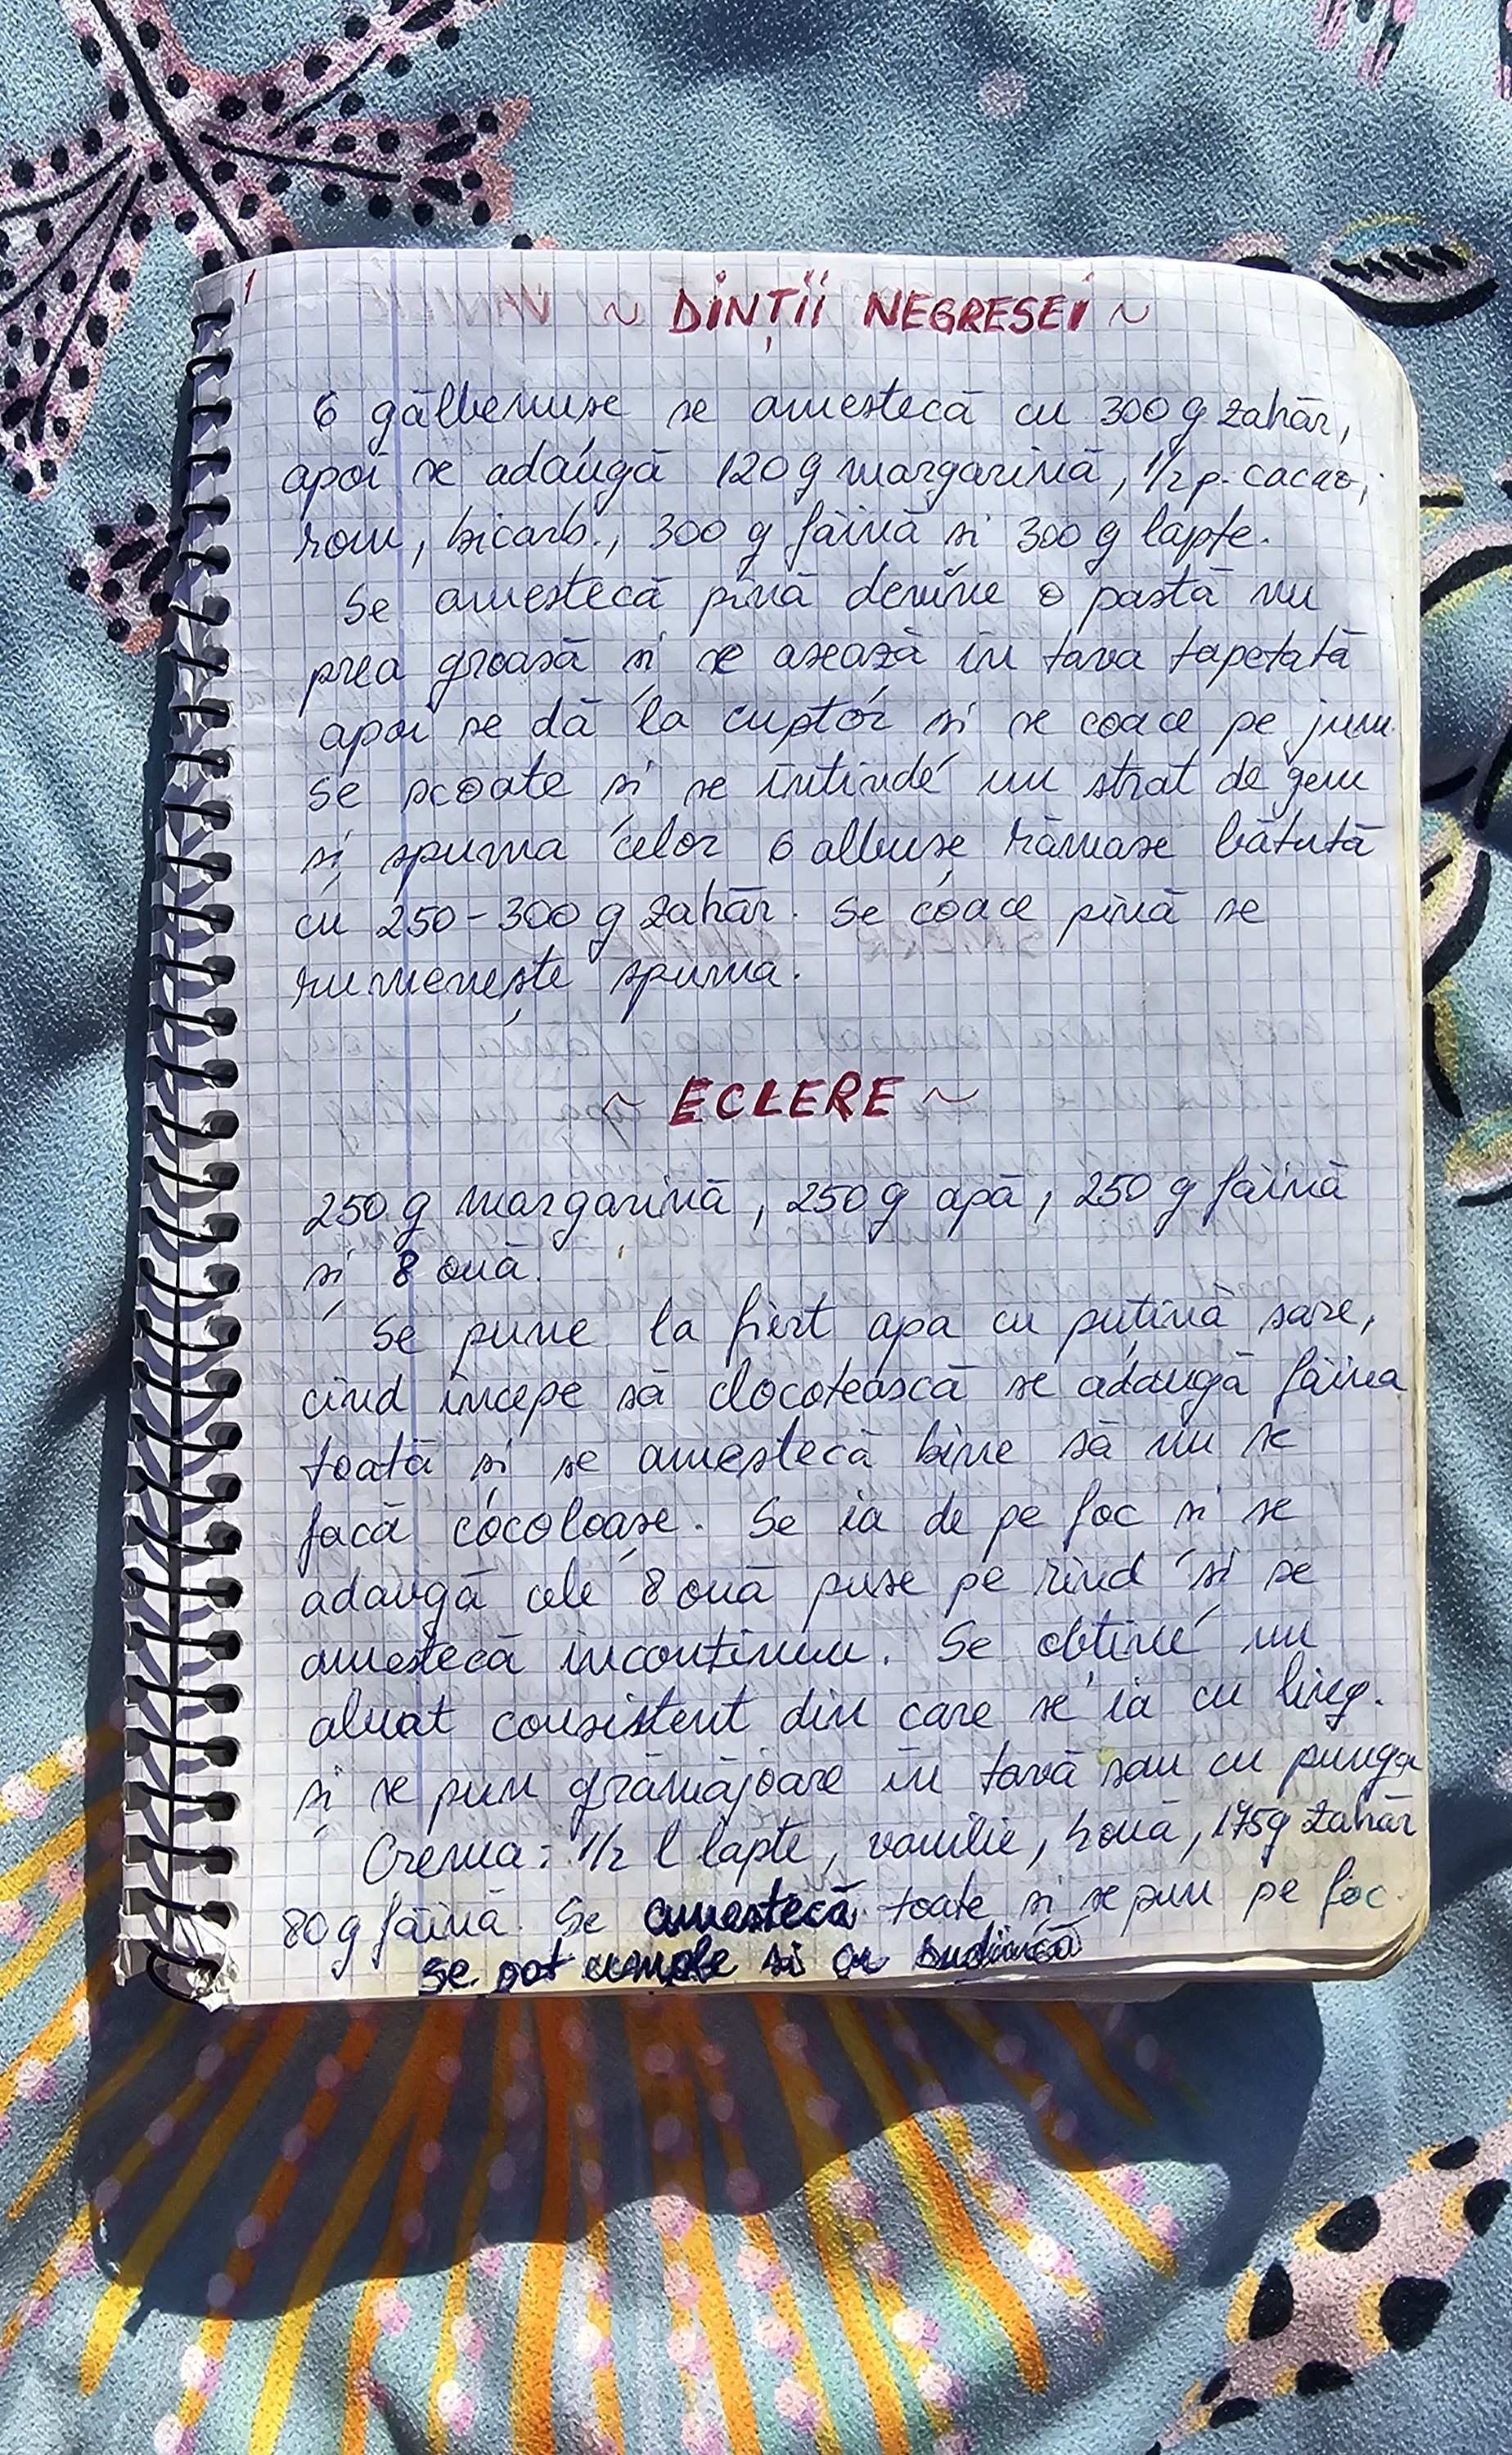 1
~ DINȚII NEGRESEI ~
6 gălbenușe se amestecă cu 300 g zahăr,
apoi se adaugă 120 g margarină, 1/2 p. cacao,
rom, bicarb., 300 g făină și 300 g lapte.
Se amestecă pînă devine o pastă nu
prea groasă și se așează în tava tapetată
apoi se dă la cuptor și se coace pe jum.
Se scoate și se întinde un strat de gem
și spuma celor 6 albușe rămase bătută
cu 250-300 g zahăr. Se coace pînă se
rumenește spuma.
~ ECLERE ~
250 g margarină, 250 g apă, 250 g făină
și 8 ouă.
Se pune la fiert apa cu puțină sare,
cînd începe să clocotească se adaugă făina
toată și se amestecă bine să nu se
facă cocoloașe. Se ia de pe foc și se
adaugă cele 8 ouă puse pe rînd și se
amestecă incontinuu. Se obține un
aluat consistent din care se ia cu ling.
și se pun grămăjoare în tavă sau cu punga
Crema: 1/2 l lapte, vanilie, ouă, 175g zahăr
80 g făină. Se amestecă toate și se pun pe foc.
Se pot umple și cu budincă